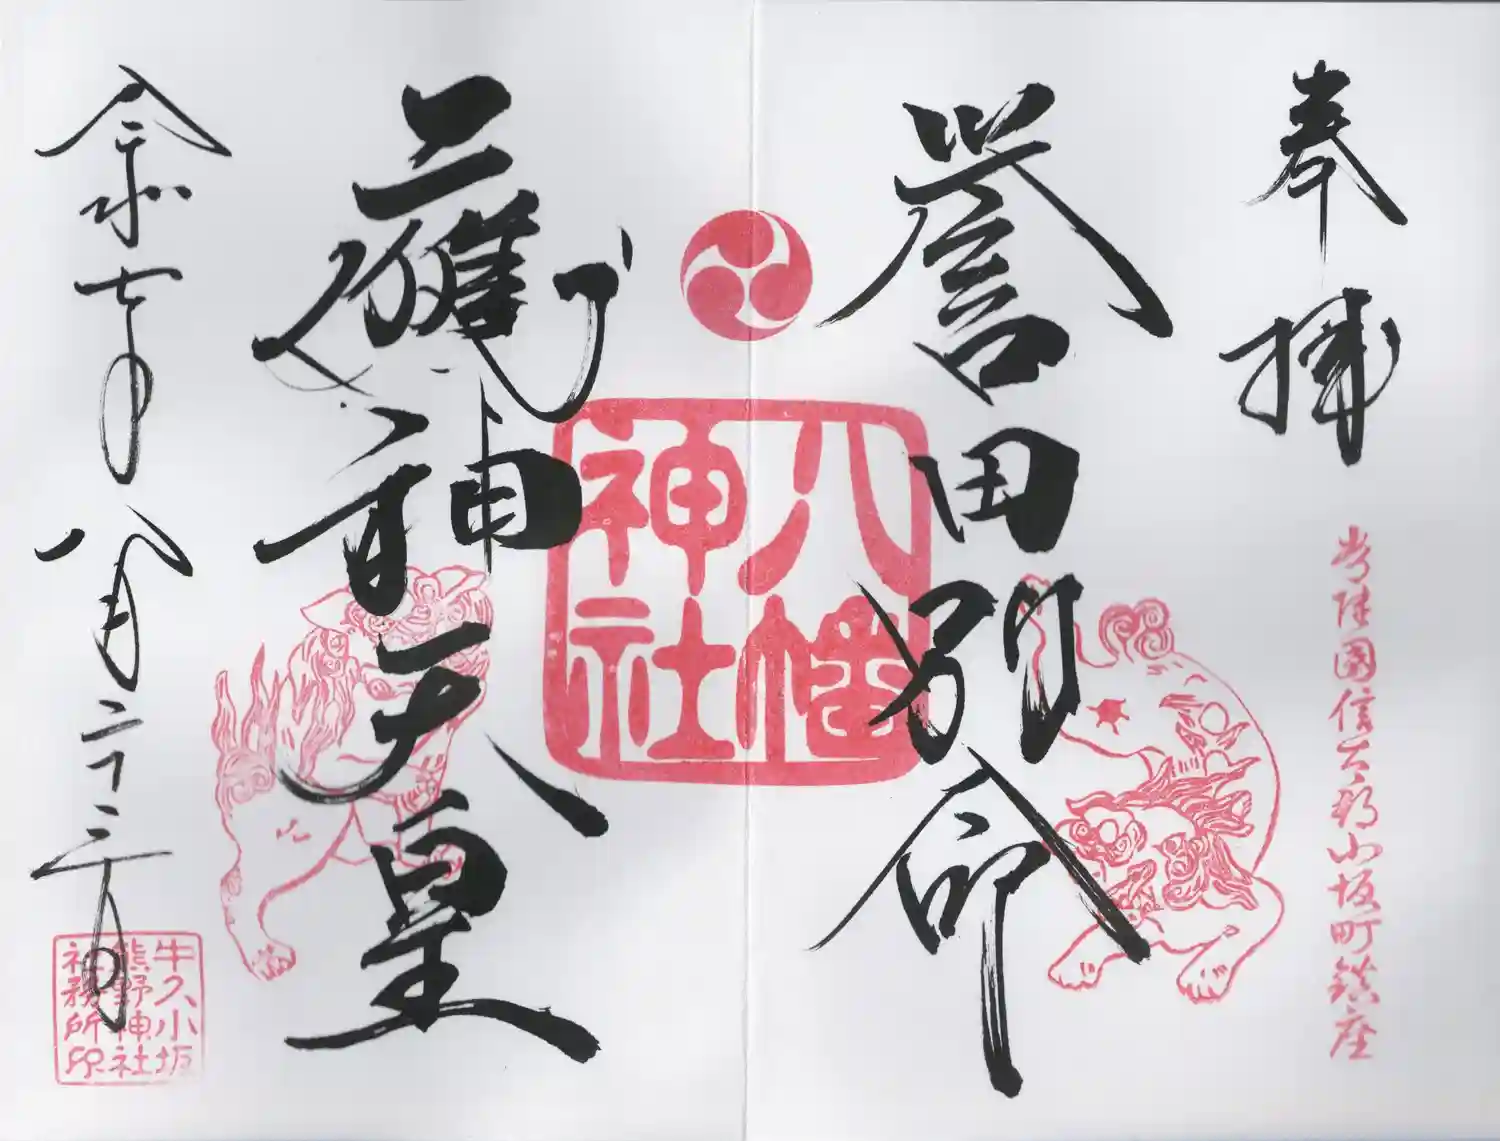 奉拝
常陸國信太郡小坂町鎮座
誉田別命
八幡
神社
應神天皇
令和七年八月二十三日
牛久小坂
熊野神社
社務所印